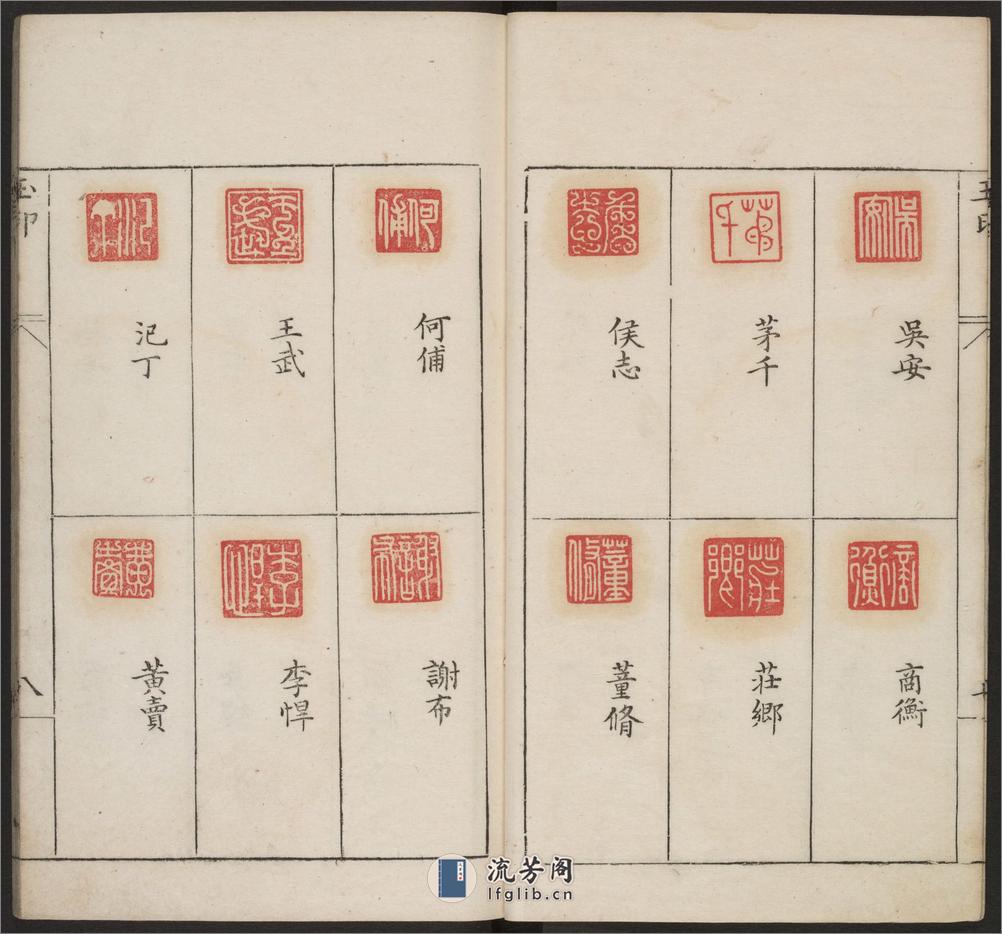 吳安
茅千
侯志
商衡
莊鄉
董脩
何俌
王武
汜丁
謝布
李悍
黃賣
玉印
八
流芳阁
lfglib.cn